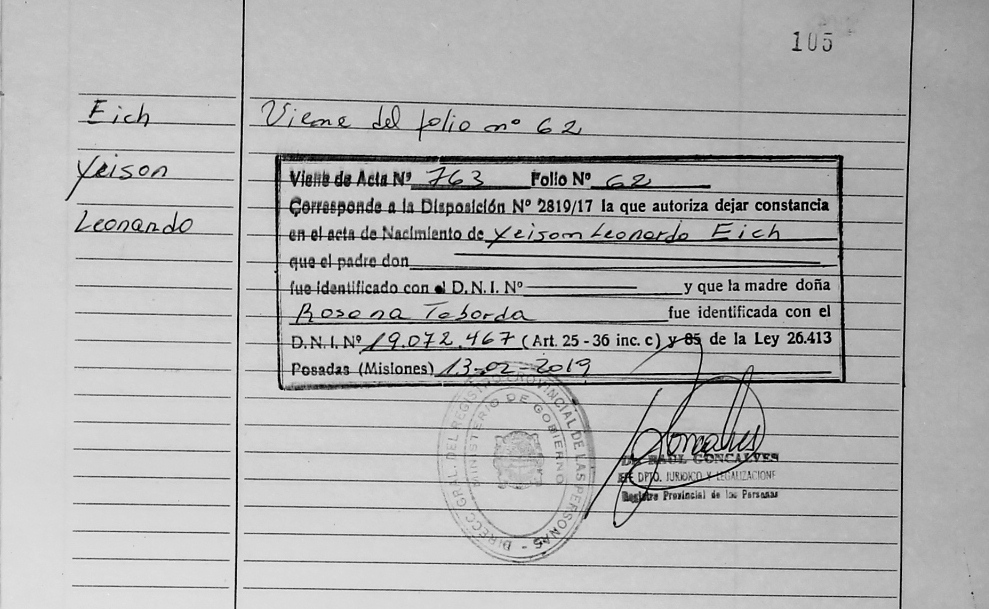 105
Eich
Yeison
Leonardo
Viene del folio nº 62
Viene de Acta Nº 763 Folio Nº 62
Corresponde a la Disposición Nº 2819/17 la que autoriza dejar constancia
en el acta de Nacimiento de Yeison Leonardo Eich
que el padre don
fue identificado con el D.N.I. Nº y que la madre doña
Rosana Taborda fue identificada con el
D.N.I. Nº 19.072.467 (Art. 25 - 36 inc. c) y 85 de la Ley 26.413
Posadas (Misiones) 13-02-2019
DIRECC. GRAL. DEL REGISTRO PROVINCIAL DE LAS PERSONAS -
MINISTERIO DE GOBIERNO
Dr. RAUL GONCALVES
JEFE DPTO. JURIDICO Y LEGALIZACIONE
Registro Provincial de las Personas